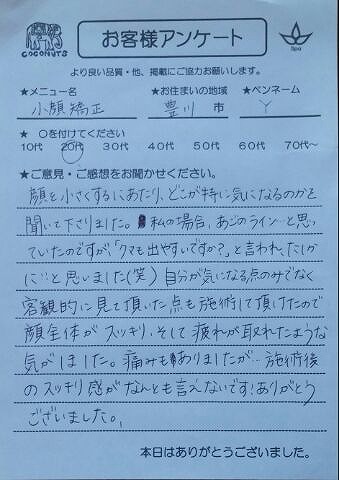 COCONUTS
お客様アンケート
Spa
より良い品質・他、掲載にご協力お願いします。
★メニュー名 ★お住まいの地域 ★ペンネーム
小顔矯正 豊川 市 Y
★ ○を付けてください
10代 20代 30代 40代 50代 60代 70代～
★ご意見・ご感想をお聞かせください。
顔を小さくするにあたり、どこが特に気になるのかを
聞いて下さりました。私の場合、あごのライン…と思っ
ていたのですが、「クマも出やすいですか?」と言われ、たしか
に…と思いました(笑) 自分が気になる点のみでなく
客観的に見て頂いた点も施術して頂けたので
顔全体がスッキリ、そして疲れが取れたような
気がしました。痛みもありましたが…施術後
のスッキリ感がなんとも言えないです!ありがとう
ございました。
本日はありがとうございました。